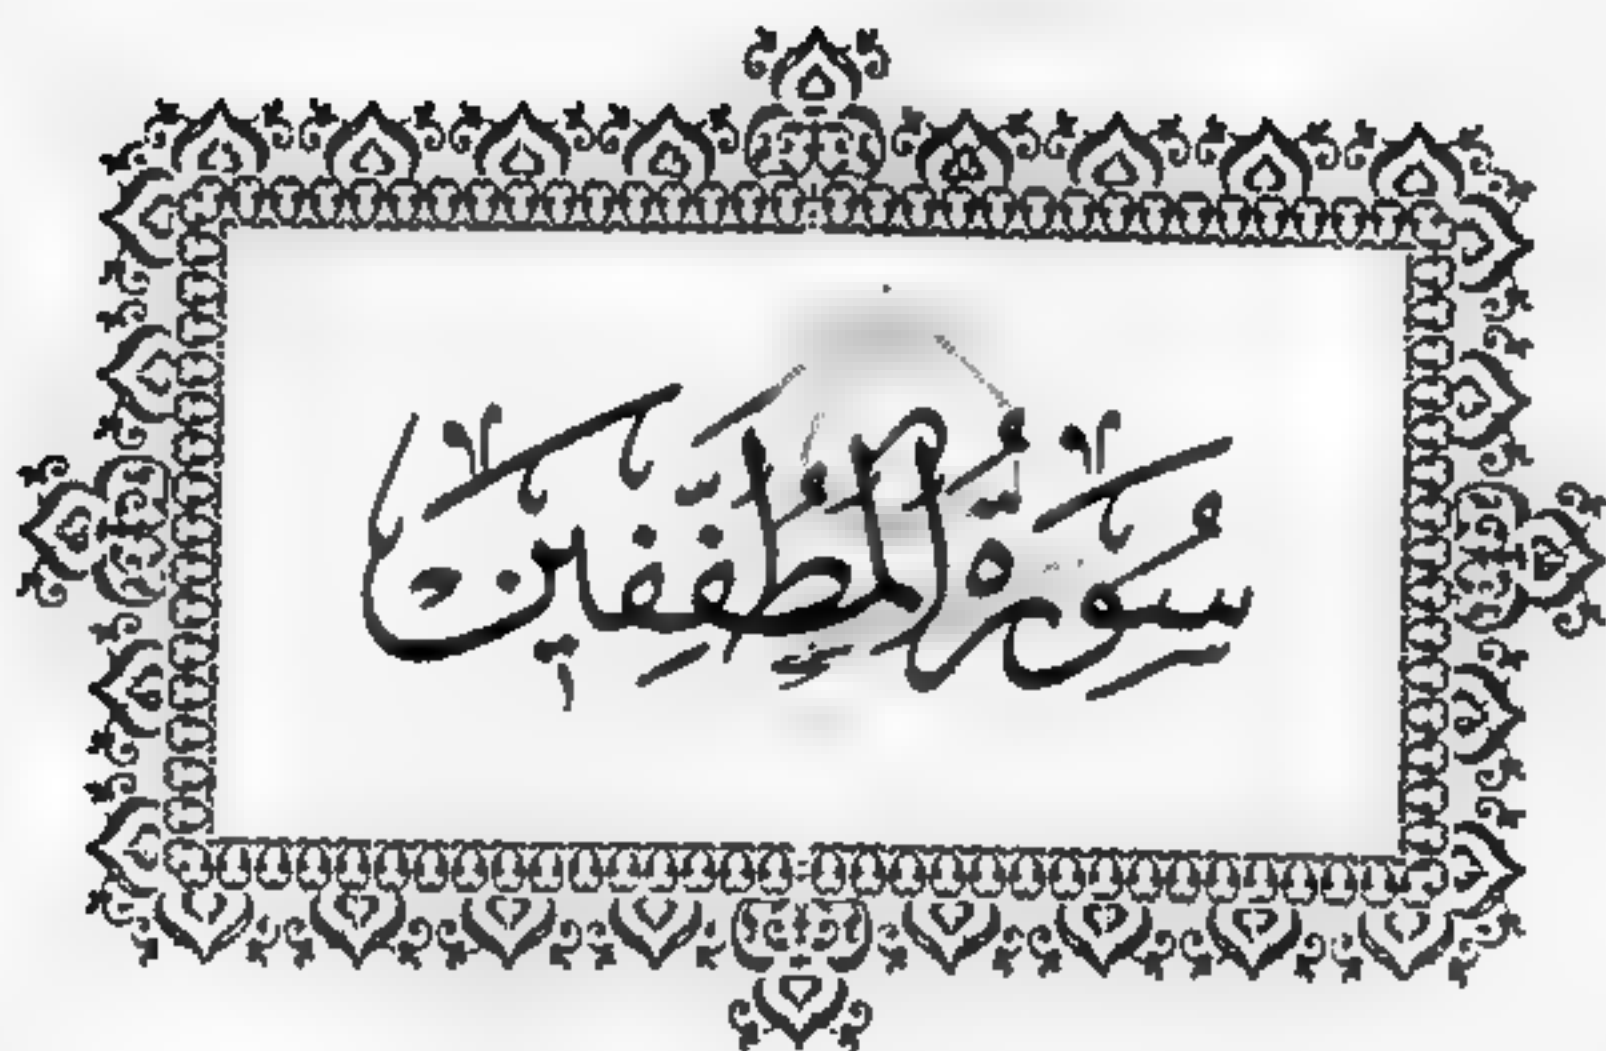 سُورَةُ الْمُطَفِّفِين